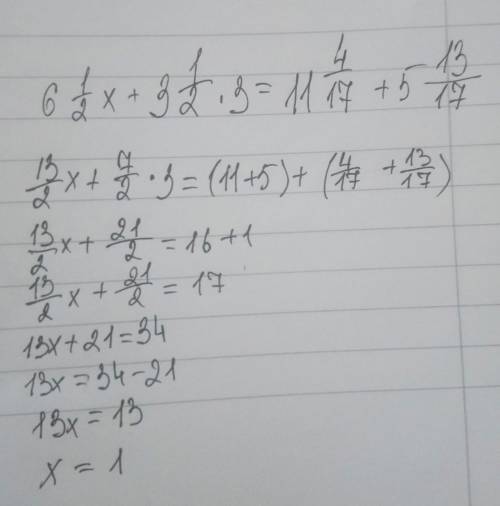 6 1/2 x + 3 1/2 · 3 = 11 4/17 + 5 13/17
13/2 x + 7/2 · 3 = (11+5) + (4/17 + 13/17)
13/2 x + 21/2 = 16 + 1
13/2 x + 21/2 = 17
13x + 21 = 34
13x = 34 - 21
13x = 13
x = 1